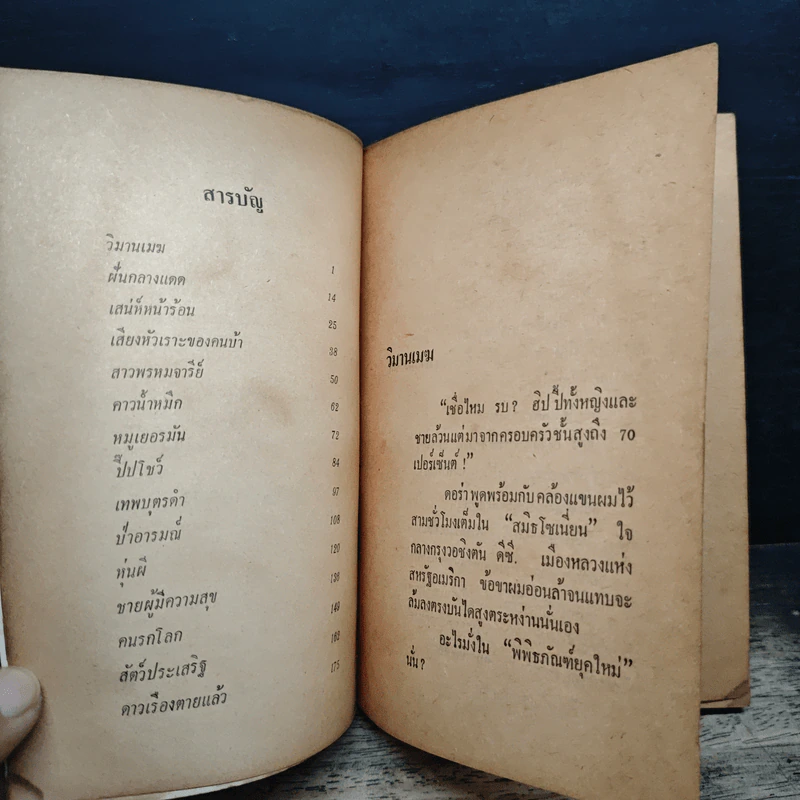 สารบัญ
วิมานเมฆ 1
ฝันกลางแดด 14
เสน่ห์หน้าร้อน 25
เสียงหัวเราะของคนบ้า 38
สาวพรหมจารีย์ 50
คาวน้ำหมึก 62
หมูเยอรมัน 72
ปี๊ปโชว์ 84
เทพบุตรดำ 97
ป่าอารมณ์ 108
หุ่นผี 120
ชายผู้มีความสุข 136
คนรกโลก 149
สัตว์ประเสริฐ
ดาวเรืองตายแล้ว 175
วิมานเมฆ
“เชื่อไหม รบ? ฮิปปี้ทั้งหญิงและ
ชายล้วนแต่มาจากครอบครัวชั้นสูงถึง 70
เปอร์เซ็นต์!”
ดอร่าพูดพร้อมกับคล้องแขนผมไว้
สามชั่วโมงเต็มใน “สมิธโซเนี่ยน” ใจ
กลางกรุงวอชิงตัน ดีซี. เมืองหลวงแห่ง
สหรัฐอเมริกา ข้อขาผมอ่อนล้าจนแทบจะ
ล้มลงตรงบันไดสูงตระหง่านนั่นเอง
อะไรมั่งใน “พิพิธภัณฑ์ยุคใหม่”
นั่น?